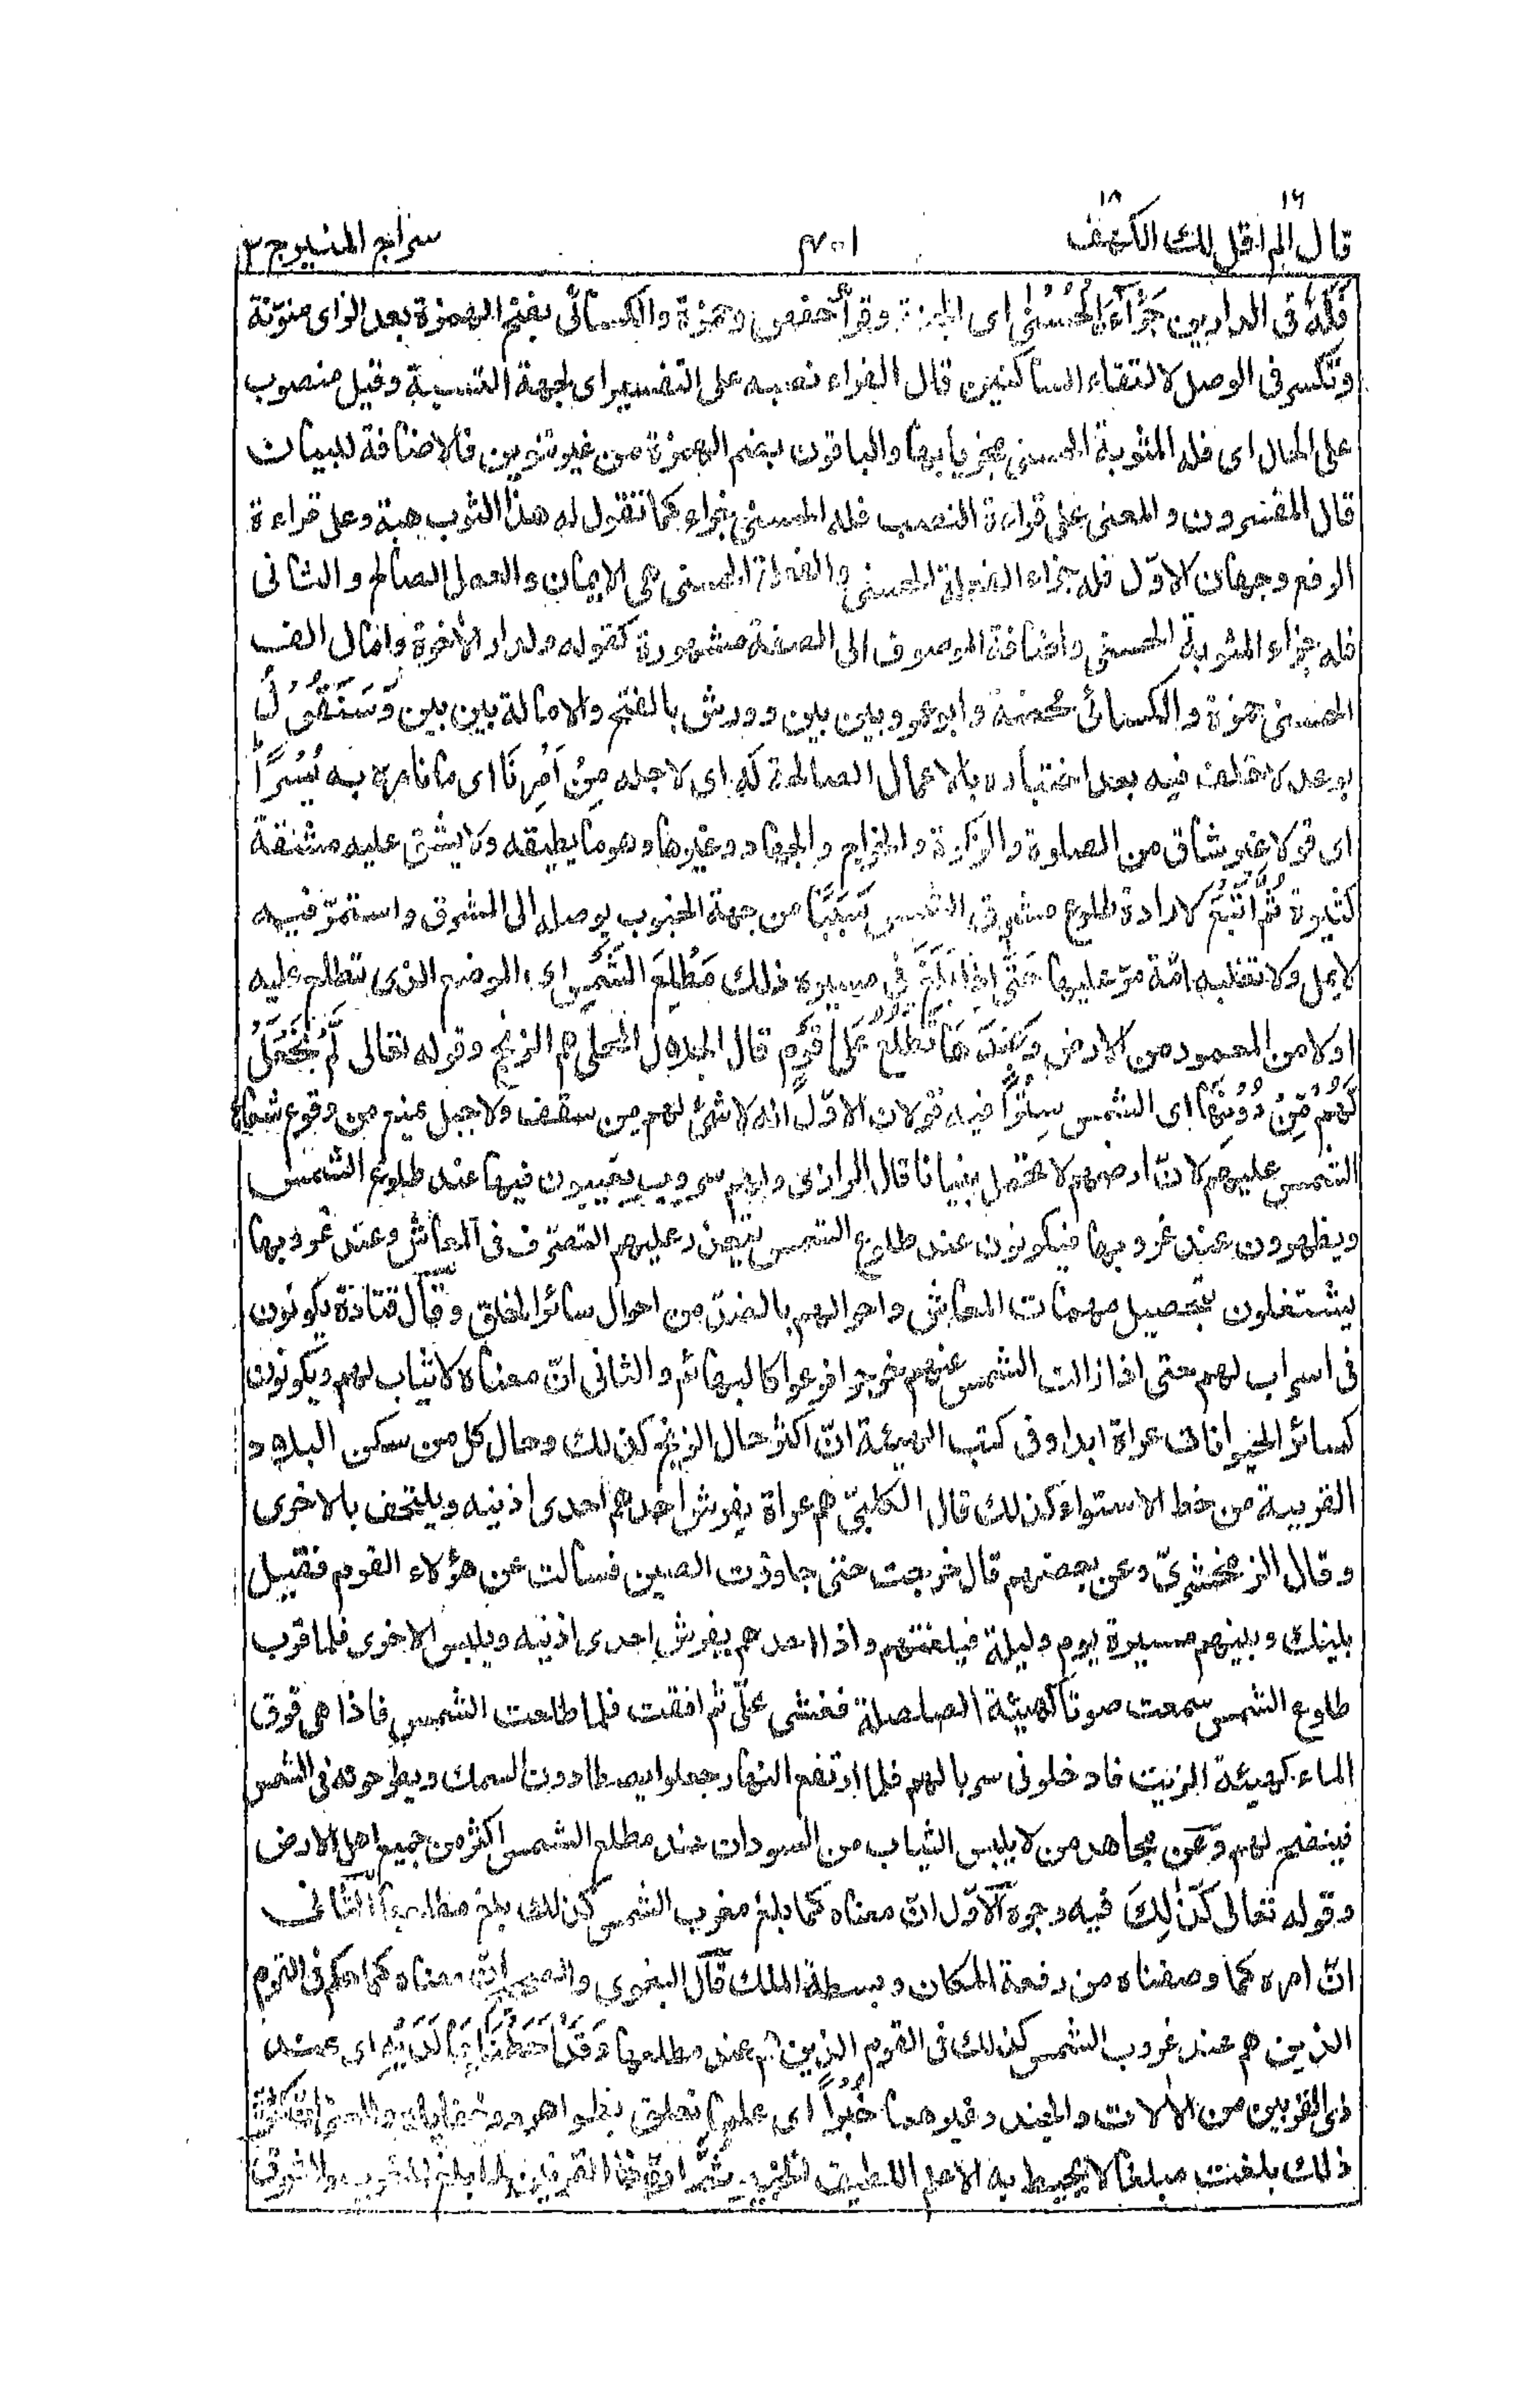 قال الم اقل لك الكهف
سراج المنيرج ٣
فَلَهُ فى الدارين جَزَآءَۨالْحُسْنٰى اى الجنة وقرأ حفص وحمزة والكسائى بفتح الهمزة بعد الزاى منوّنة
وتكسر فى الوصل لالتقاء الساكنين قال الفراء نصبه على التفسير اى لجهة النسبة وقيل منصوب
على الحال اى فله المثوبة الحسنى مجزيا بها والباقون بضم الهمزة من غير تنوين فالاضافة للبيان
قال المفسرون والمعنى على قراءة النصب فله الحسنى جزاء كما تقول له هذا الثوب هبة وعلى قراءة
الرفع وجهان الاوّل فله جزاء الفعلة الحسنى والفعلة الحسنى هى الايمان والعمل الصالح والثانى
فله جزاء المثوبة الحسنى واضافة الموصوف الى الصفة مشهورة كقوله ولدار الأخرة وامال الف
الحسنى حمزة والكسائى محضة وابوعمرو بين بين وورش بالفتح والامالة بين بين وَسَنَقُوْلُ
بوعد لا خلف فيه بعد اختباره بالاعمال الصالحة لَهٗ اى لاجله مِنْ اَمْرِنَا اى ما نامره به يُسْرًا
اى قولا غير شاق من الصلوة والزكوة والخراج والجهاد وغيرها وهو ما يطيقه ولا يشق عليه مشقة
كثيرة ثُمَّ اَتْبَعَ لارادة طلوع مشرق الشمس سَبَبًا من جهة الجنوب يوصله الى المشرق واستمرّ فيه
لا يمل ولا تغلبه امّة مرّ عليها حَتّٰى اِذَا بَلَغَ فى مسيره ذلك مَطْلِعَ الشَّمْسِ اى الموضع الذى تطلع عليه
اولا من المعمور من الارض وَجَدَهَا تَطْلُعُ عَلٰى قَوْمٍ قال الجلال المحلى هم الزنج وقوله تعالى لَّمْ نَجْعَلْ
لَّهُمْ مِّنْ دُوْنِهَا اى الشمس سِتْرًا فيه قولان الاوّل انه لا شئ لهم من سقف ولا جبل يمنع من وقوع شعاع
الشمس عليهم لانّ ارضهم لا تحتمل بنيانا قال الرازى ولهم سروب يغيبون فيها عند طلوع الشمس
ويظهرون عند غروبها فيكونون عند طلوع الشمس يتعذر عليهم التصرّف فى المعاش وعند غروبها
يشتغلون بتحصيل مهمات المعاش واحوالهم بالضدّ من احوال سائر الخلق وقال قتادة يكونون
فى اسراب لهم حتى اذا زالت الشمس عنهم خرجوا فرعوا كالبهائم والثانى انّ معناه لا ثياب لهم ويكونون
كسائر الحيوانات عراة ابدا وفى كتب الهيئة انّ اكثر حال الزنج كذلك وحال كل من سكن البلاد
القريبة من خط الاستواء كذلك قال الكلبىّ هم عراة يفرش احدهم احدى اذنيه ويلتحف بالاخرى
وقال الزمخشرىّ وعن بعضهم قال خرجت حتى جاوزت الصين فسالت عن هؤلاء القوم فقيل
بلينك وبينهم مسيرة يوم وليلة فبلغتهم واذا احدهم يفرش احدى اذنيه ويلبس الاخرى فلما قرب
طلوع الشمس سمعت صوتا كهيئة الصلصلة فغشى علىّ ثم افقت فلما طلعت الشمس فاذا هى فوق
الماء كهيئة الزيت فادخلونى سربا لهم فلما ارتفع النهار جعلوا يصطادون السمك ويطرحونه فى الشمس
فينضج لهم وعن مجاهد من لا يلبس الثياب من السودان عند مطلع الشمس اكثر من جميع اهل الارض
وقوله تعالى كَذٰلِكَ فيه وجوه الاوّل انّ معناه كما بلغ مغرب الشمس كذلك بلغ مطلعها الثانى
انّ امره كما وصفناه من رفعة المكان وبسطة الملك قال البغوى والصحيح انّ معناه كما حكم فى القوم
الذين هم عند غروب الشمس كذلك فى القوم الذين هم عند مطلعها وَقَدْ اَحَطْنَا بِمَا لَدَيْهِ اى عند
ذى القرنين من الألات والجند وغيرهما خُبْرًا اى علما تعلق بظواهره وخفاياه والمراد انّ كثرة
ذلك بلغت مبلغا لا يحيط به الا علم اللطيف الخبير ثُمَّ